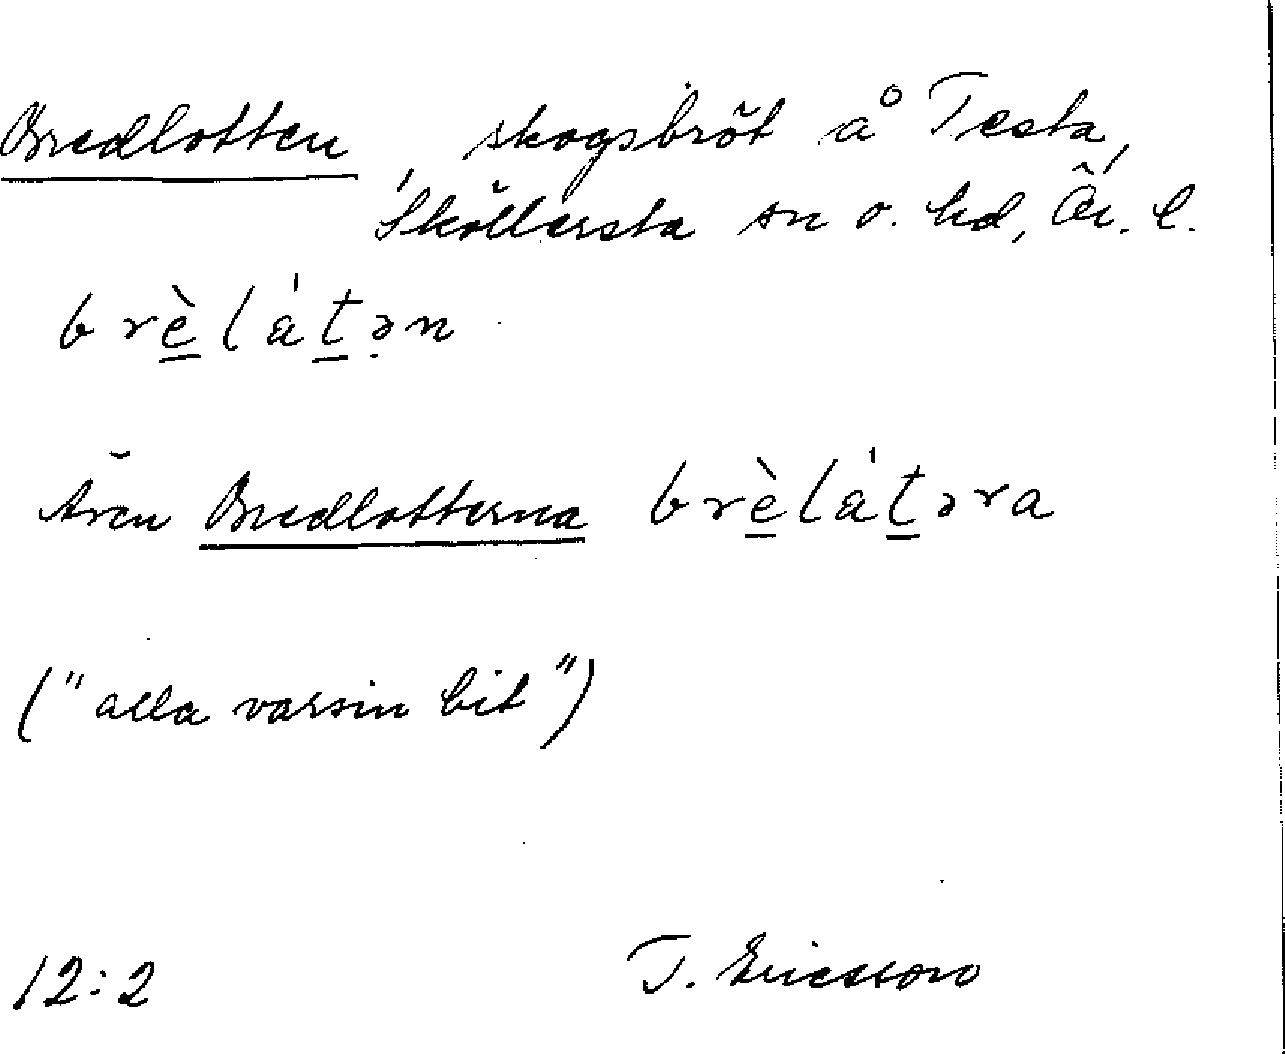 Bredlotten, skogsbröt å Testa,
Sköllersta sn o. hd, Ör. l.
brèlàtən
Även Bredlotterna brèlàtəra
("alla varsin bit")
12:2 T. Ericsson